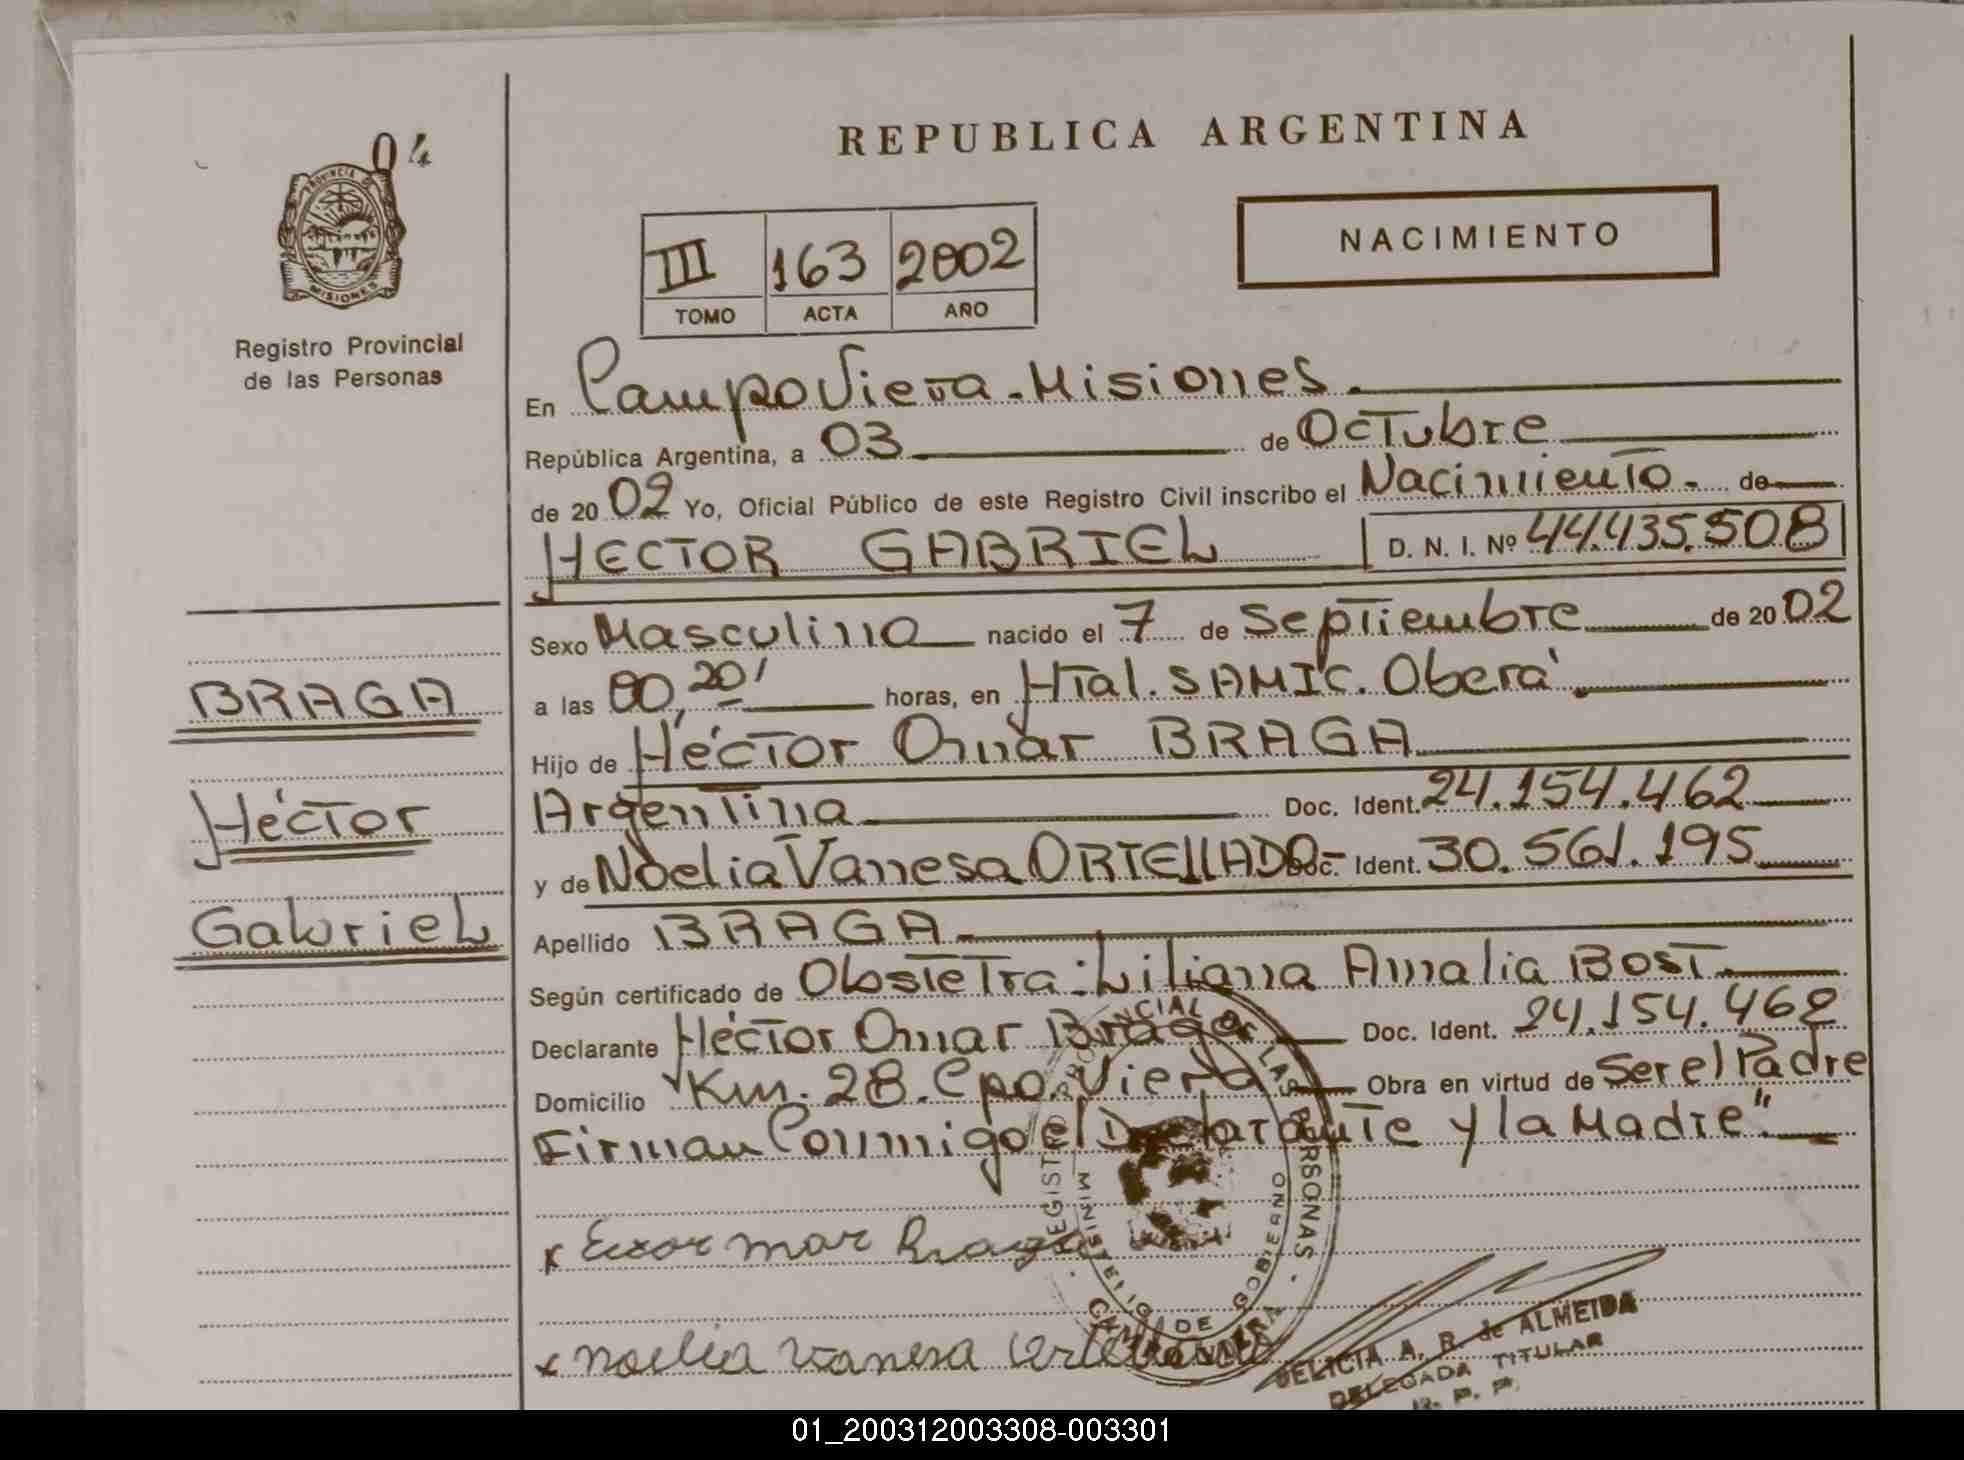 04
PROVINCIA DE
MISIONES
Registro Provincial
de las Personas
REPUBLICA ARGENTINA
III 163 2002
TOMO ACTA AÑO
NACIMIENTO
En Campo Viera - Misiones.
República Argentina, a 03 de Octubre
de 2002 Yo, Oficial Público de este Registro Civil inscribo el Nacimiento. de
HECTOR GABRIEL D. N. I. Nº 44.435.508
Sexo Masculino nacido el 7 de Septiembre de 2002
a las 00,20' horas, en Htal. SAMIC. Oberá.
BRAGA
Hijo de Héctor Omar BRAGA
Argentina Doc. Ident. 24.154.462
Héctor
y de Noelia Vanesa ORTELLADO- Doc. Ident. 30.561.195
Gabriel
Apellido BRAGA
Según certificado de Obstetra: Liliana Amalia BOST
Declarante Héctor Omar Braga Doc. Ident. 24.154.462
Domicilio Km. 28. Cpo. Viera Obra en virtud de Ser el Padre
Firman Conmigo el Declarante y la Madre"
REGISTRO PROVINCIAL DE LAS PERSONAS
MINISTERIO DE GOBIERNO
CAMPO VIERA
x mar Braga
x Noelia Vanesa
DELICIA A. R. de ALMEIDA
DELEGADA TITULAR
R. P. P.
01_200312003308-003301